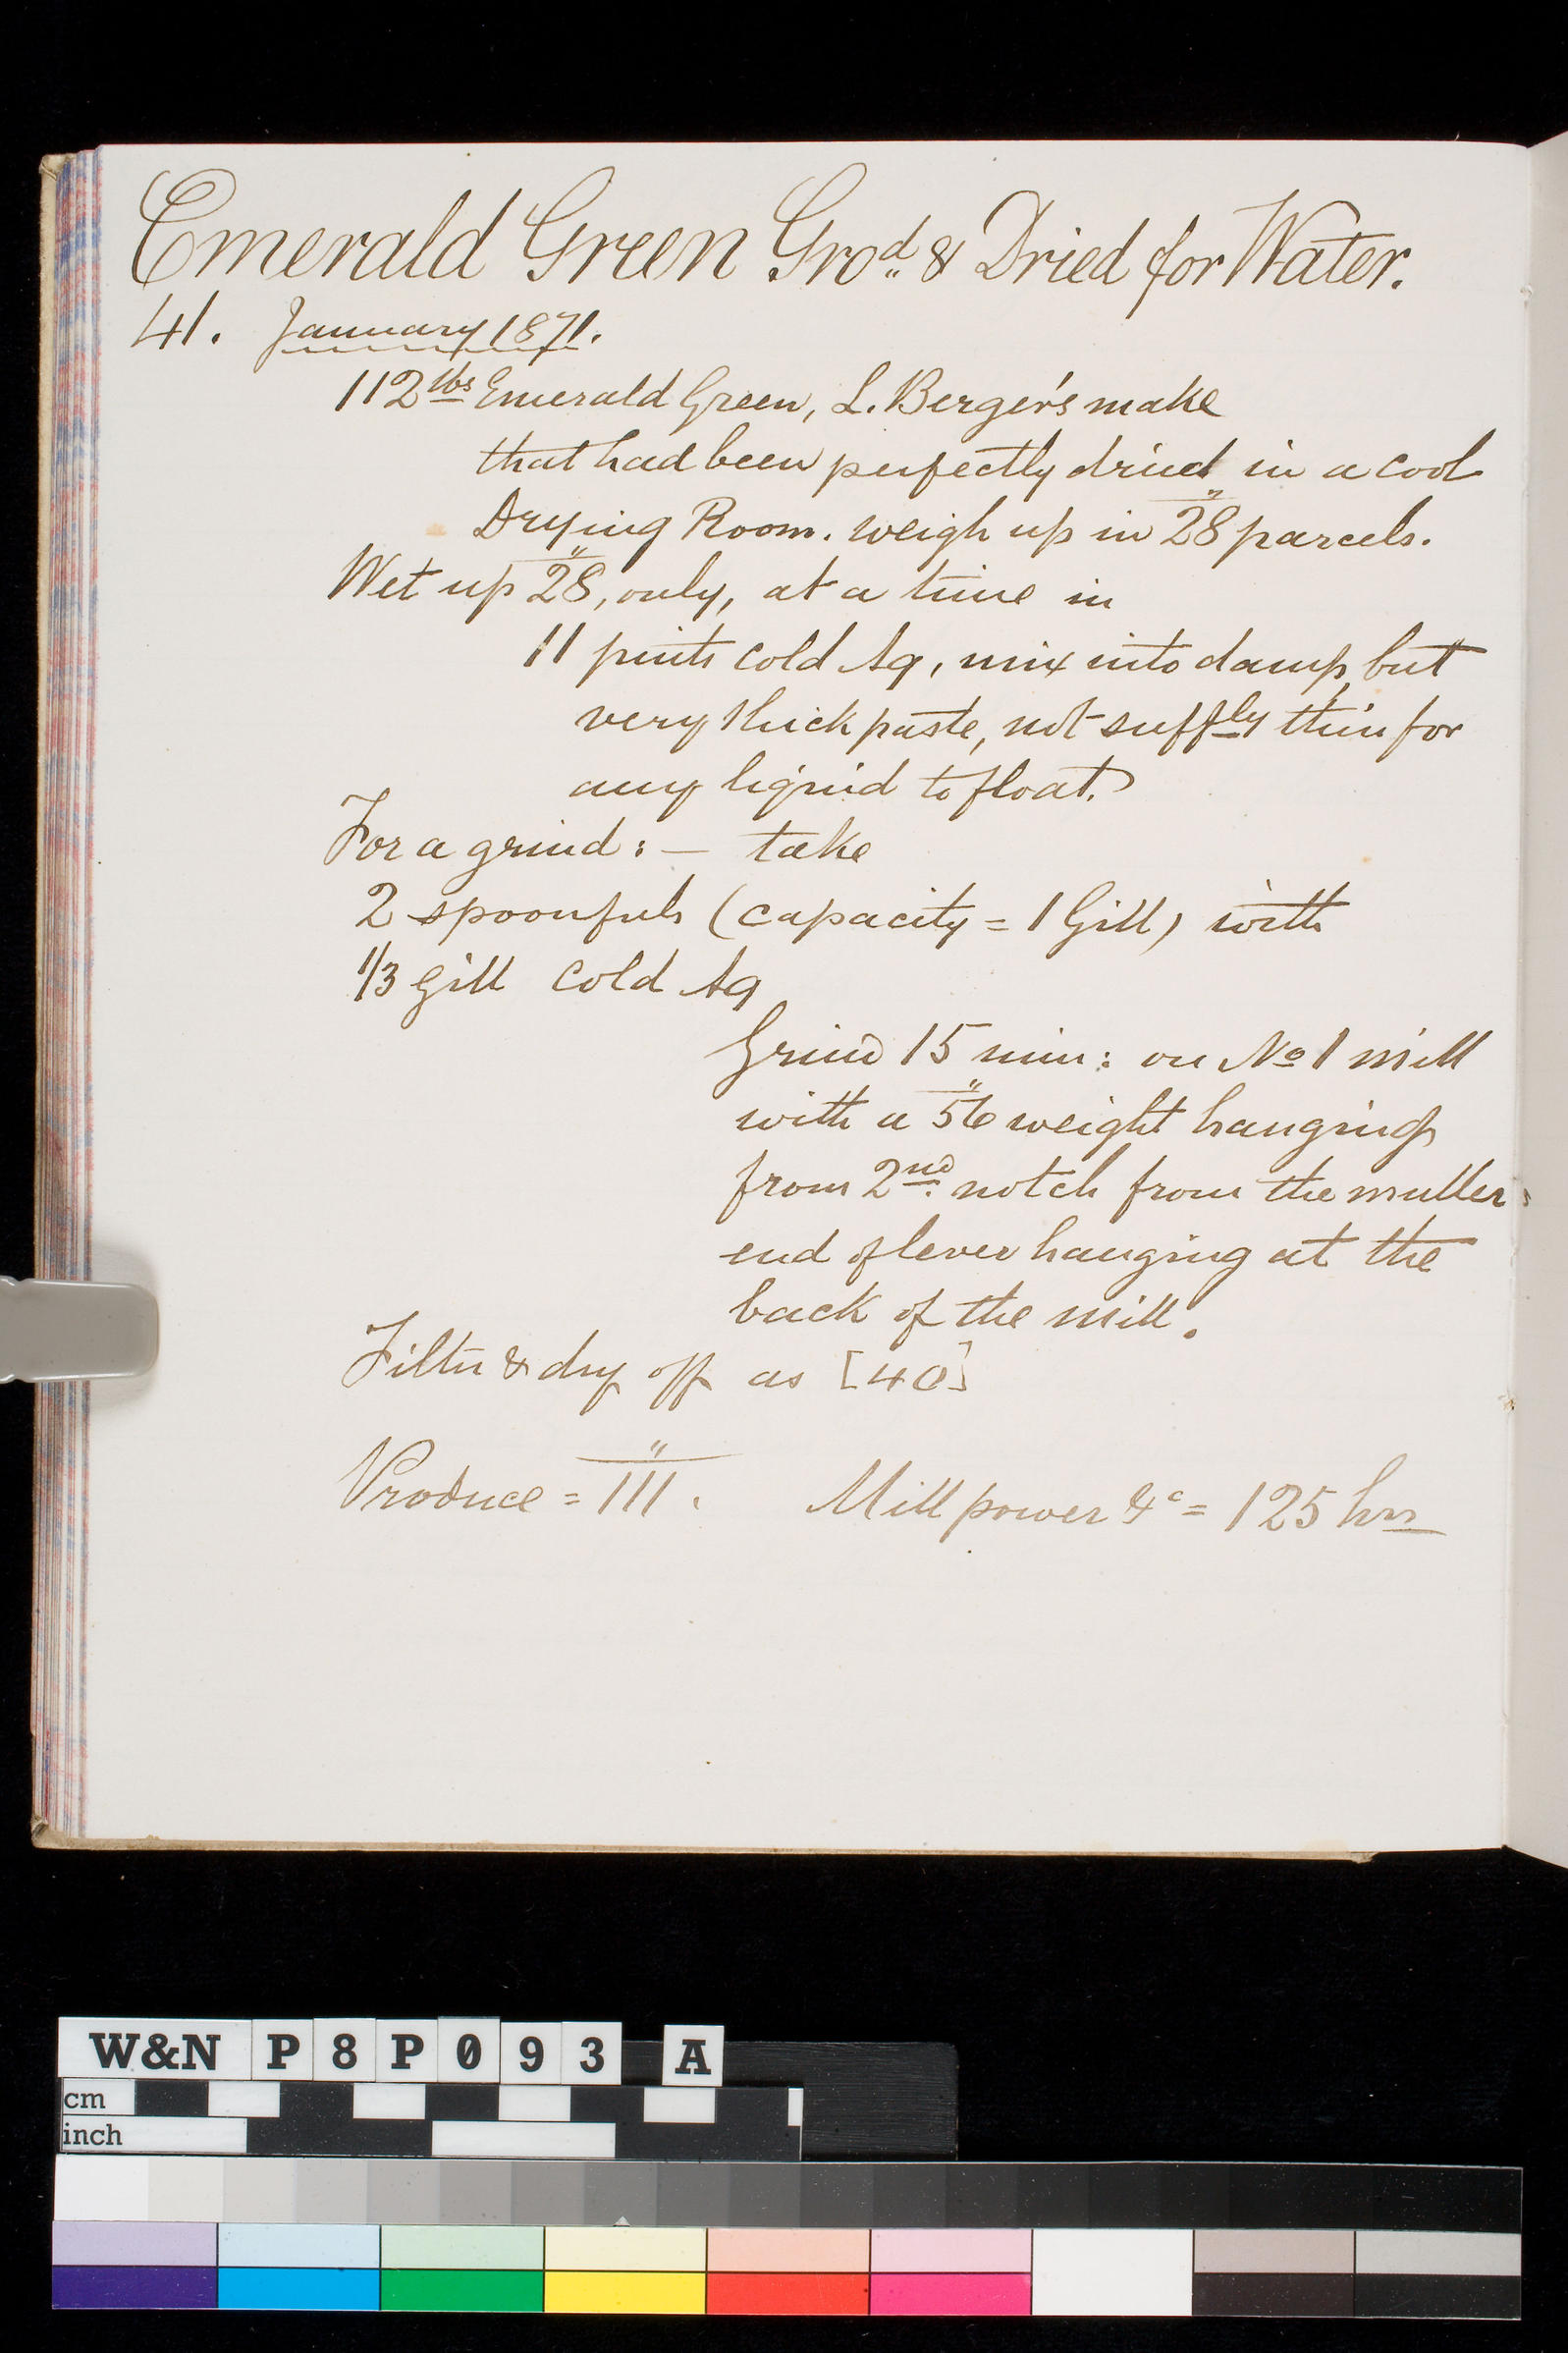 Emerald Green Gro^d. & Dried for Water.
41. January 1871.
112 lbs Emerald Green, L. Berger's make
that had been perfectly dried in a cool
Drying Room. weigh up in 28" parcels.
Wet up 28", only, at a time in
11 pints cold Aq, mix into damp, but
very thick paste, not suff^ly thin for
any liquid to float.
For a grind : — take
2 spoonfuls (capacity = 1 Gill) with
1/3 gill cold Aq
Grind 15 min: on No 1 mill
with a 56" weight hanging
from 2nd. notch from the muller
end of lever hanging at the
back of the mill.
Filter & dry off as [40]
Produce = 111". Mill power &c = 125 hrs
W&N P8P093 A
cm
inch